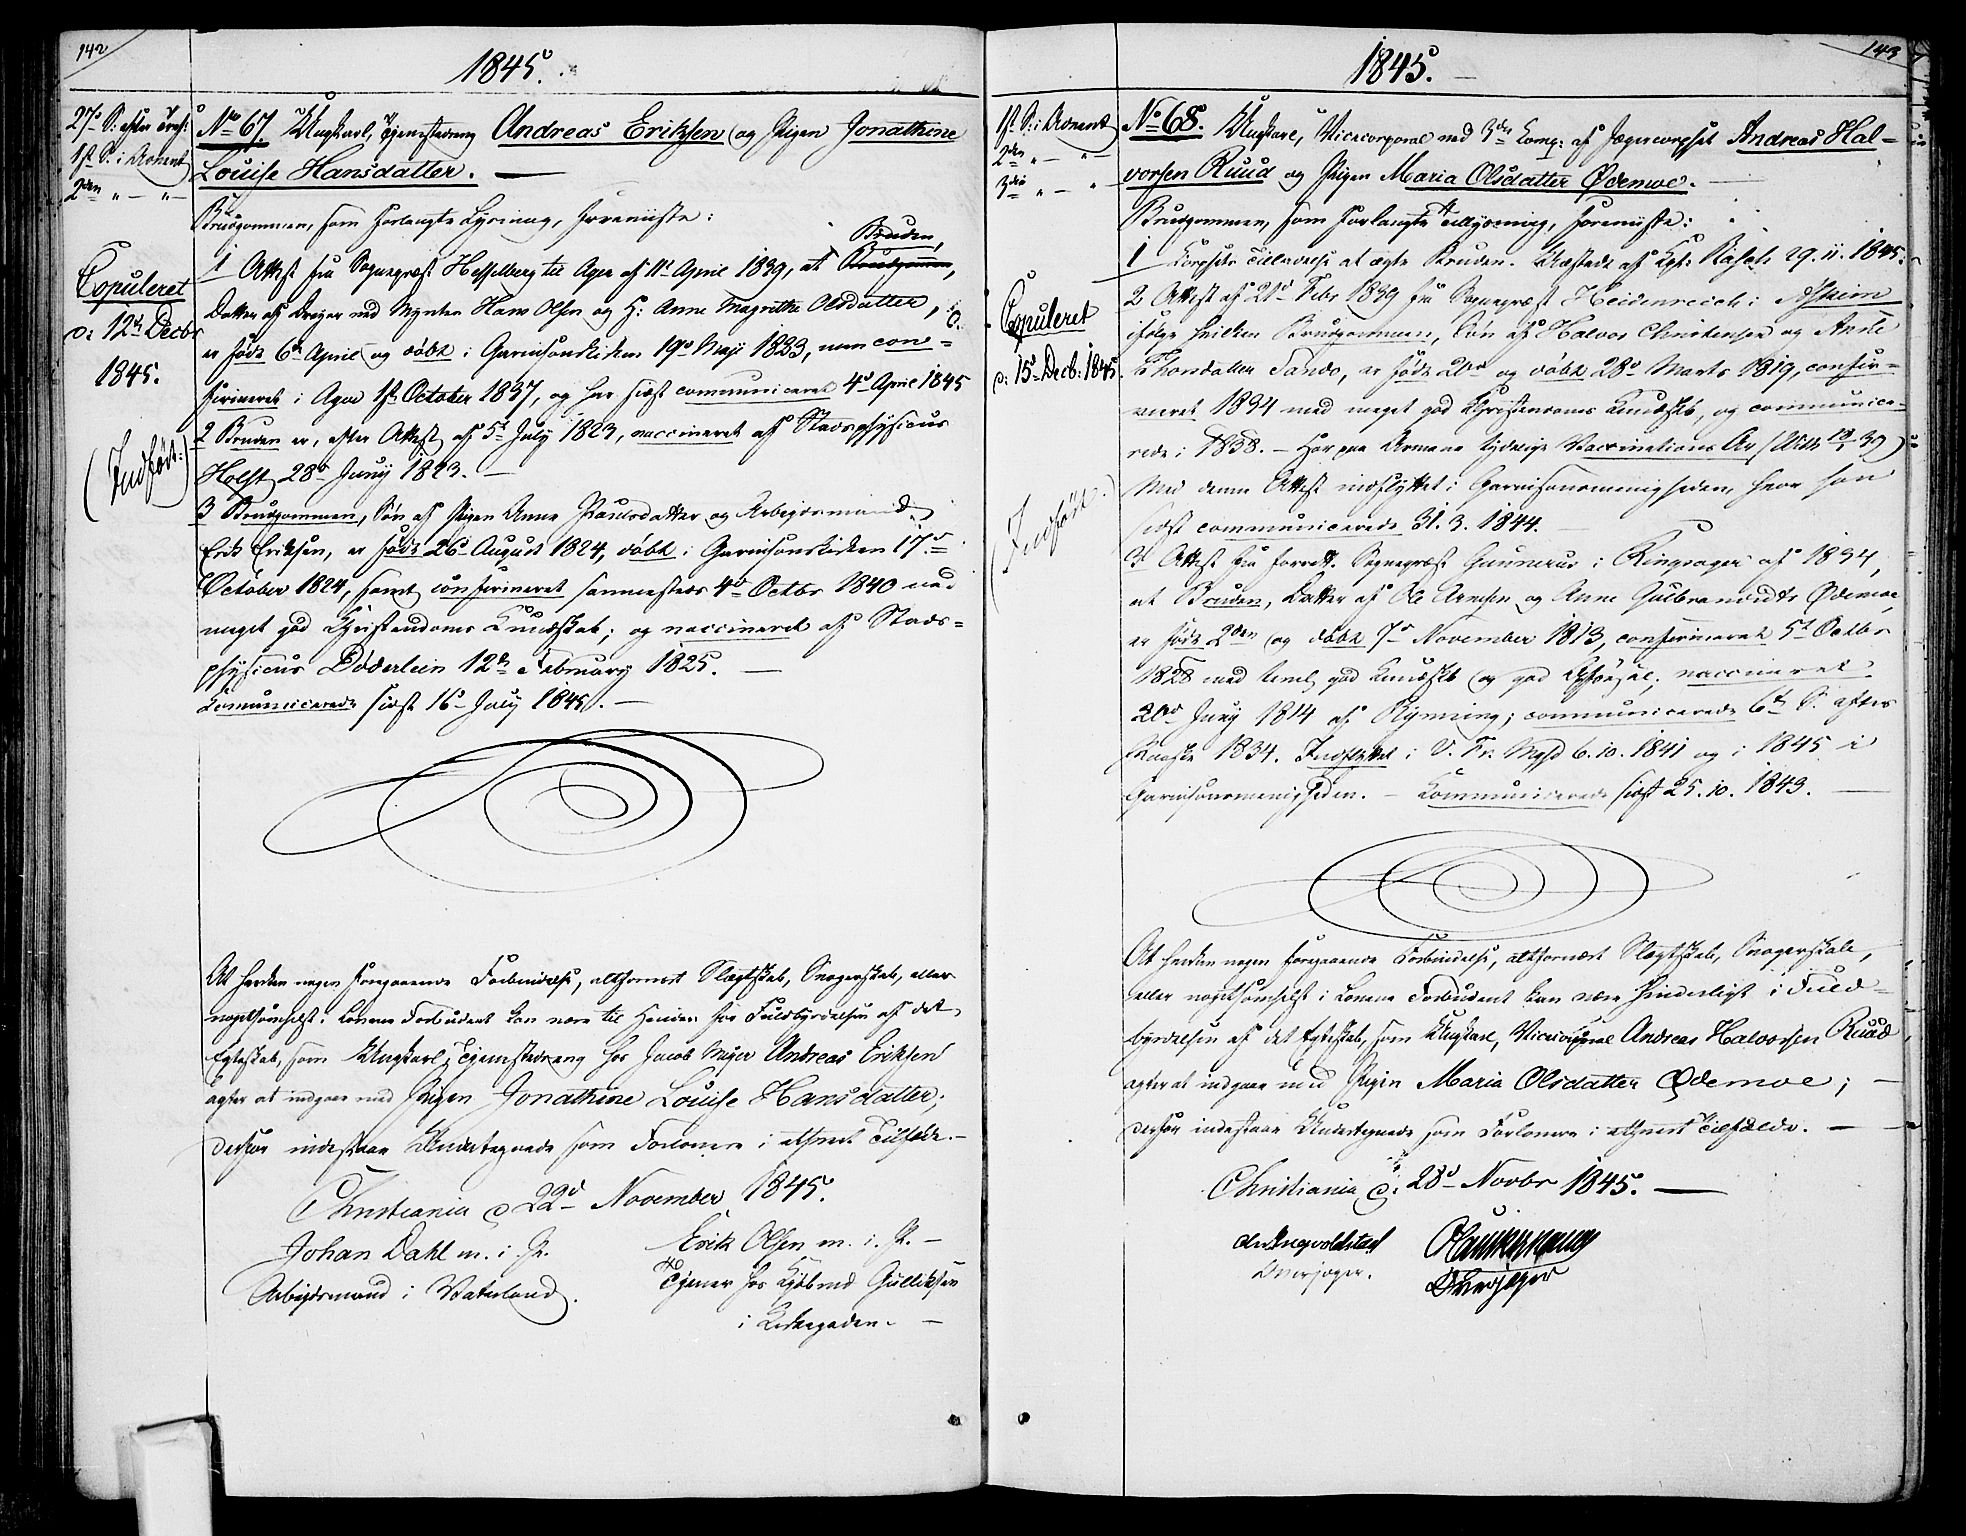 142
1845.
27de S: efter Tref:
1ste S. i Advent
2den " — " —
Copuleret
d: 12te Decbr
1845.
(Indført.)
No 67. Ungkarl, Tjenestedreng Andreas Eriksen og Pigen Jonathine
Louise Hansdatter. —
Brudgommen, som forlangte Lysning, foreviiste:
Bruden,
1 Attest fra Sognepræst Hesselberg til Ager af 11te April 1839, at Brudgommen,
Datter af Dreyer ved Mynten Hans Olsen og H: Anne Magrethe Olsdatter,
er født 6te April og døbt i Garnisonskirken 19de Maji 1823, men con-
firmeret i Ager 1ste October 1837, og har sidst communiceret 4de April 1845
2 Bruden er, efter Attest af 5te July 1823, vaccineret af Stadsphysicus
Holst 28de Juny 1823. —
3 Brudgommen, Søn af Pigen Anne Paulsdatter og Arbejdsmand
Erik Eriksen, er født 26de August 1824, døbt i Garnisonskirken 17de
October 1824, samt confirmeret sammesteds 4de Octbr 1840 med
meget god Christendoms Kundskab; og vaccineret af Stads=
physicus Døderlein 12te February 1825. —
Comunicerede sidst 16de July 1845. —
At hverken nogen foregaaende Forbindelse, altfornært Slægtskab, Svogerskab, eller
nogetsomhelst i Lovene Forbudent kan være til Hinder for Fuldbyrdelsen af det
Egteskab, som Ungkarl, Tjenestedreng hos Jacob Meyer Andreas Eriksen
agter at indgaae med Pigen Jonathine Louise Hansdatter;
derfor indestaae Undertegnede som Forlovere i ethvert Tilfælde. —
Christiania d 22de November 1845.
Johan Dahl m. i. P.
Erik Olsen m. i. P. —
Arbejdsmand i Vaterland.
Tjener hos Kjøbmd Gulliksen
i Kirkegaden. —
143
1845. —
1ste S: i Advent
2den " — " —
3die " — " —
Copuleret
d: 15de Decb: 1845
(Indført.)
No 68. Ungkarl, Vicecorporal ved 3die Comp: af Jægercorpset Andreas Hal-
vorsen Ruud og Pigen Maria Olsdatter Ødemoe. —
Brudgommen, som forlangte Tillysning, foreviiste:
1 Corpsets Tilladelse at ægte Bruden. Udstedt af Cpt: 29.11.1845.
2 Attest af 21de Febr 1839 fra Sognepræst Heidenreich i Askim
ifølge hvilken Brudgommen, Søn af Halvor Christensen og Anne
Thorsdatter Sando, er født 20de og døbt 28de Marts 1819, confir-
meret 1834 med meget god Christendoms Kundskb, og communice-
rede i 1838. — Har paa Armene tydelige Vaccinations Ar
Med denne Attest indflyttet i Garnisonsmenigheden, hvor han
sidst communicerede 31.3.1844. —
3 Attest fra forrett. Sognepræst Gunnerus i Ringsager af 1834,
at Bruden, Datter af Ole Arnesen og Anne Gulbrandsdtr Ødemoe
er født 2den og døbt 7de November 1813, confirmeret 5te Octbr
1828 med god Kundskb og god Opførsel; vaccineret
20de Juny 1814 af Rynning; communicerede 6te S. efter
Paaske 1834. Indflyttet i V. Fr. Mghd 6.10.1841 og i 1845 i
Garnisonsmenigheden. — Communicerede sidst 25.10.1843. —
At hverken nogen foregaaende Forbindelse, altfornært Slægtskab, Svogerskab,
eller nogetsomhelst i Lovene Forbudent kan være hinderligt i Fuld-
byrdelsen af det Egteskab, som Ungkarl, Vicecorporal Andreas Halvorsen Ruud
agter at indgaae med Pigen Maria Olsdatter Ødemoe; —
derfor indestaae Undertegnede som Forlovere i ethvert Tilfælde. —
Christiania, d: 28de Novbr 1845. —
Overjæger.
Overjæger